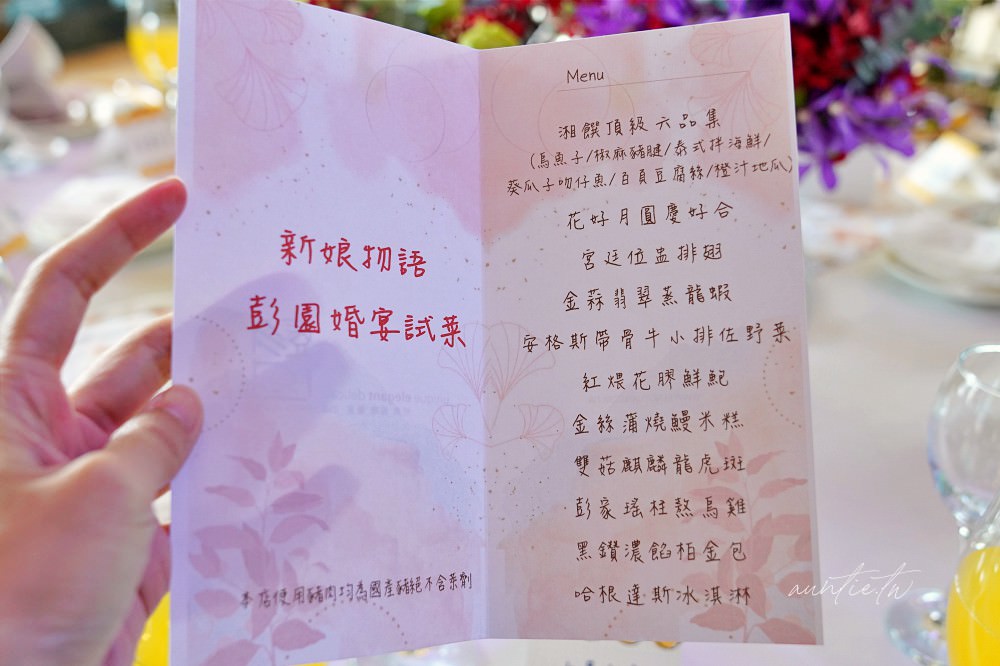 新娘物語
彭園婚宴試菜
本店使用豬肉均為國產豬絕不含萊劑
Menu
湘饌頂級六品集
(烏魚子/椒麻豬腱/泰式拌海鮮/
葵瓜子吻仔魚/百頁豆腐絲/橙汁地瓜)
花好月圓慶好合
宮廷位盅排翅
金蒜翡翠蒸龍蝦
安格斯帶骨牛小排佐野菜
紅煨花膠鮮鮑
金絲蒲燒鰻米糕
雙菇麒麟龍虎斑
彭家瑤柱熬烏雞
黑鑽濃餡柏金包
哈根達斯冰淇淋
auntie.tw